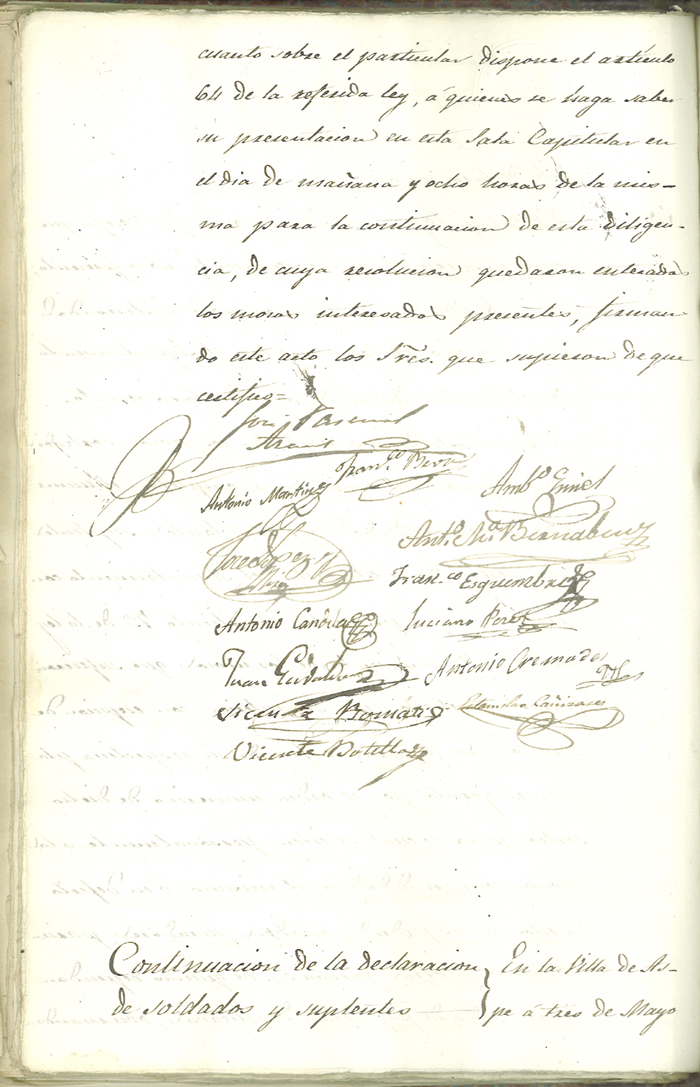 cuanto sobre el particular dispone el artículo
64 de la referida ley, á quienes se haga saber
su presentacion en esta Sala Capitular en
el dia de mañana y ocho horas de la mis-
ma para la continuacion de esta diligen-
cia, de cuya resolucion quedaron enterados
los mozos interesados presentes, firman-
do este acto los Sres. que supieron de que
certifico=
José Pascual
Fran.co
Antonio Martinez
Amb.o
Ant.o M.a Bernabeu
José Lopez
Fran.co Esgumbre
Antonio Candela
Luciano Perez
Juan
Antonio Cremades
Vicente Botella
Continuacion de la declaracion
de soldados y suplentes
En la Villa de As-
pe á tres de Mayo